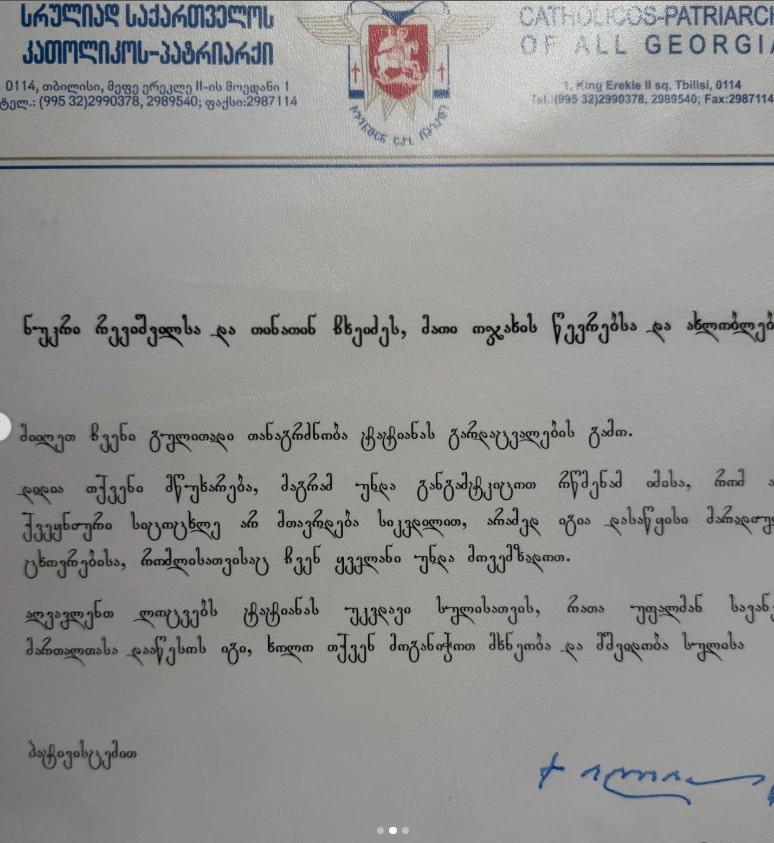 ᲡᲠᲣᲚᲘᲐᲓ ᲡᲐᲥᲐᲠᲗᲕᲔᲚᲝᲡ
ᲙᲐᲗᲝᲚᲘᲙᲝᲡ-ᲞᲐᲢᲠᲘᲐᲠᲥᲘ
0114, თბილისი, მეფე ერეკლე II-ის მოედანი 1
ტელ.: (995 32)2990378, 2989540; ფაქსი:2987114
CATHOLICOS-PATRIARCH
OF ALL GEORGIA
1, King Erekle II sq. Tbilisi, 0114
Tel.:(995 32)2990378, 2989540; Fax:2987114
ნუკრი რევიშვილსა და თინათინ ჩხეიძეს, მათი ოჯახის წევრებსა და
მიიღეთ ჩვენი გულითადი თანაგრძნობა ტატიანას გარდაცვალების გამო.
დიდია თქვენი მწუხარება, მაგრამ უნდა განგამტკიცოთ რწმენამ იმისა, რომ
ქვეყნიური სიცოცხლე არ მთავრდება სიკვდილით, არამედ იგია დასაწყისი
ცხოვრებისა, რომლისათვისაც ჩვენ ყველანი უნდა მოვემზადოთ.
აღვავლენთ ლოცვებს ტატიანას უკვდავი სულისათვის, რათა უფალმან
მართალთასა დააწესოს იგი, ხოლო თქვენ მოგანიჭოთ მხნეობა და მშვიდობა სულისა
პატივისცემით